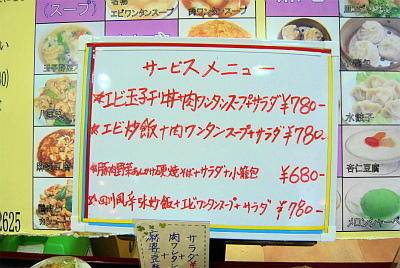 《スープ》
名物
エビワンタンスープ
肉ワンタンスープ
サービスメニュー
※エビ玉子チリ丼+肉ワンタンスープ+サラダ ¥780-
※エビ炒飯+肉ワンタンスープ+サラダ ¥780-
※豚肉野菜あんかけ硬焼そば+サラダ+小籠包 ¥680-
※四川風辛味炒飯+エビワンタンスープ+サラダ ¥780-
水餃子
杏仁豆腐
メロンシャーベ
2625
サラダ
肉ワンタン
麻婆豆腐